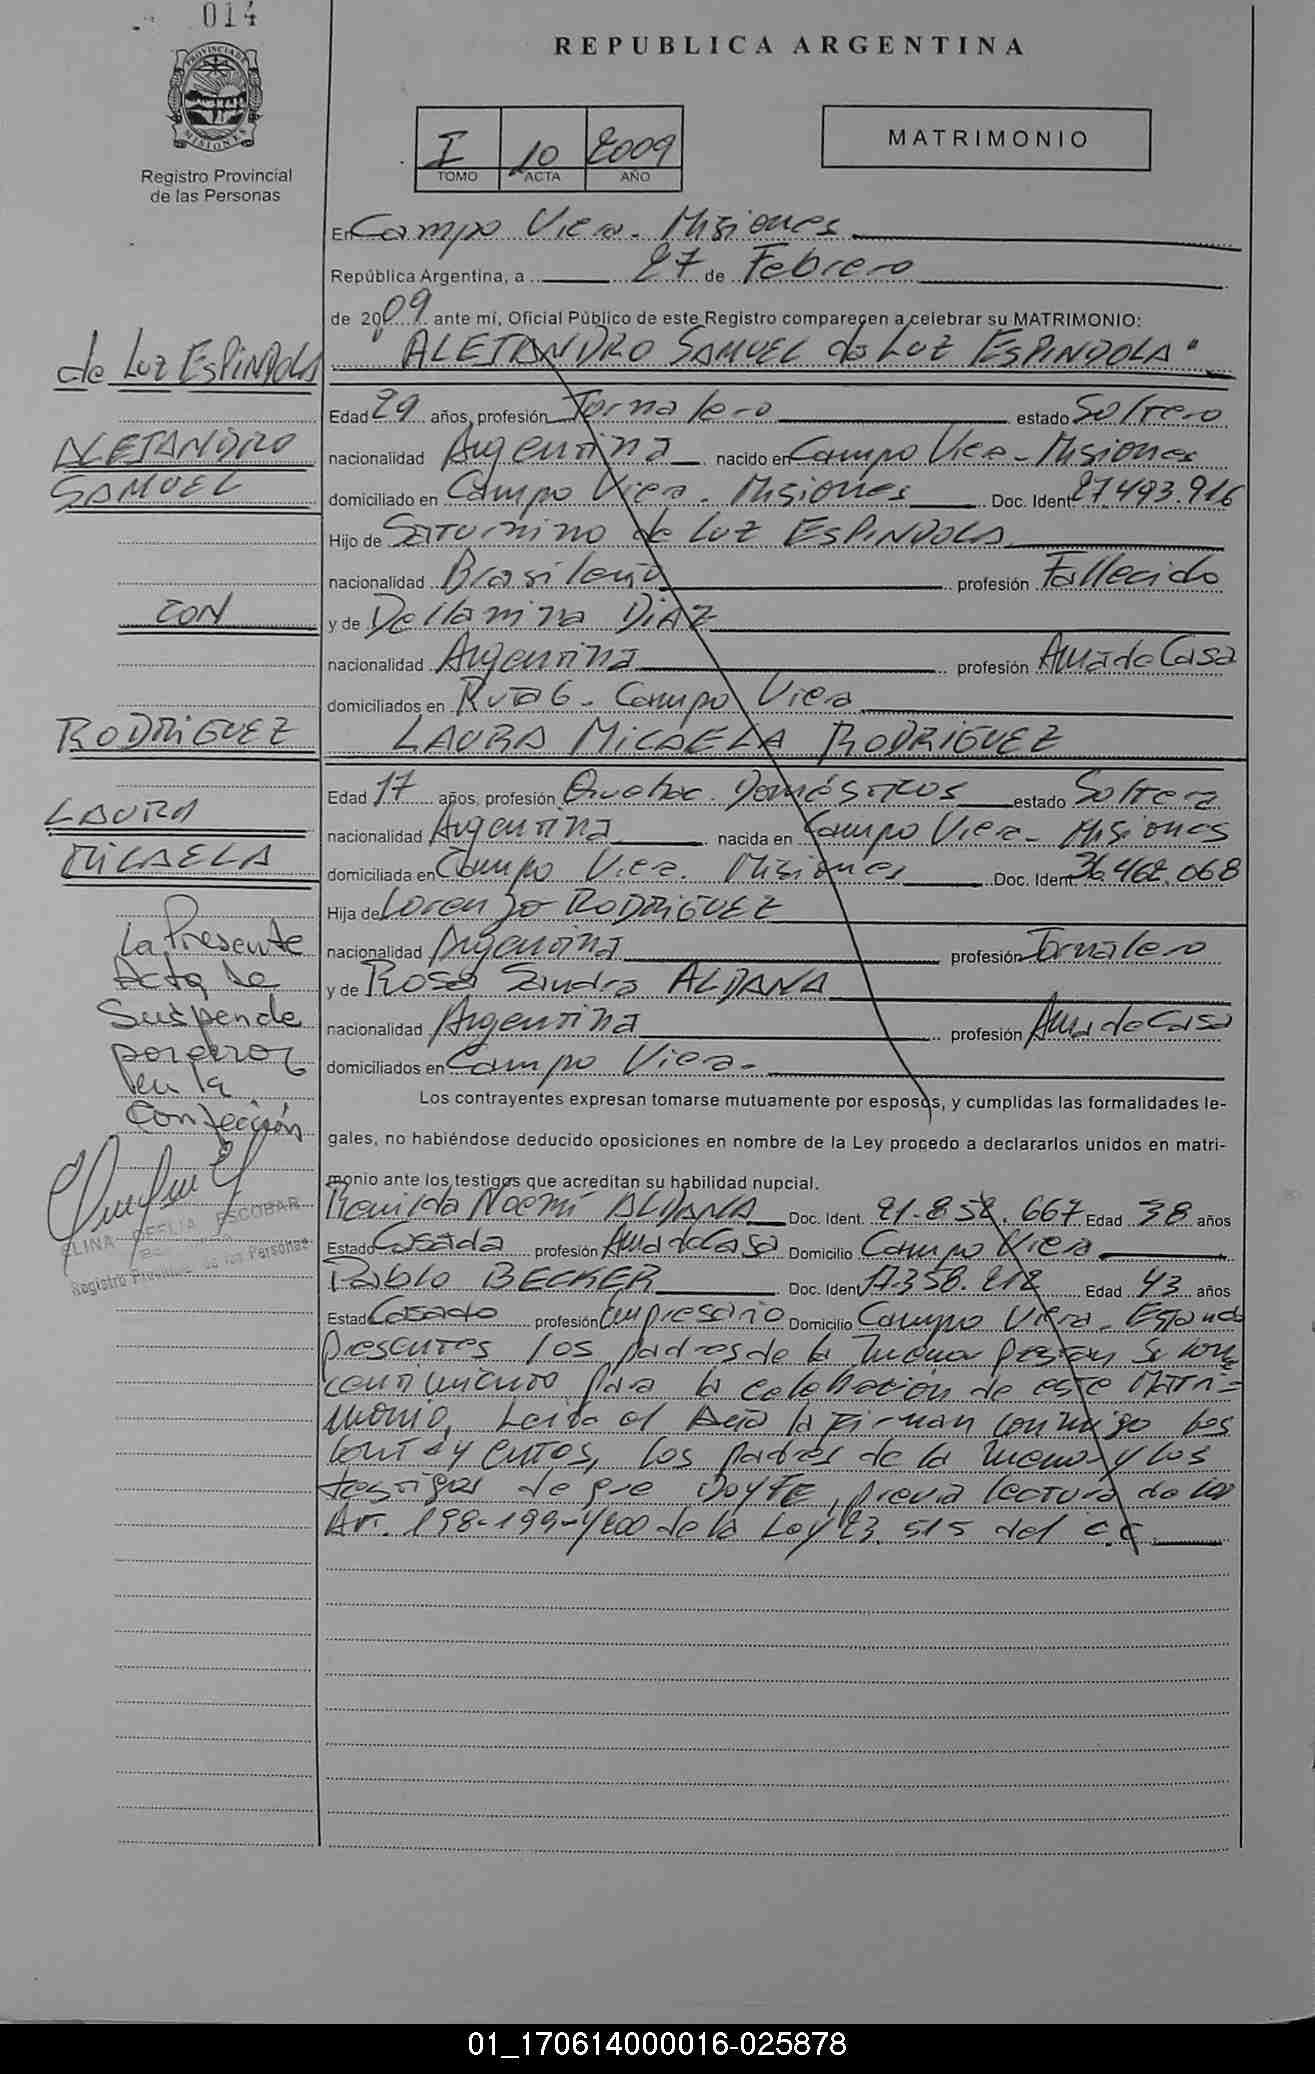 014
REPUBLICA ARGENTINA
PROVINCIA DE MISIONES
Registro Provincial
de las Personas
I 10 2009
TOMO ACTA AÑO
MATRIMONIO
En Campo Viera. Misiones
República Argentina, a 27 de Febrero
de 2009 ante mí, Oficial Público de este Registro comparecen a celebrar su MATRIMONIO:
"ALEJANDRO SAMUEL de LUZ ESPINDOLA"
Edad 29 años, profesión Jornalero estado Soltero
nacionalidad Argentina nacido en Campo Viera - Misiones
domiciliado en Campo Viera. Misiones Doc. Ident. 27.493.916
Hijo de Saturnino de LUZ ESPINDOLA
nacionalidad Brasileño profesión Fallecido
y de Dellamina DIAZ
nacionalidad Argentina profesión Ama de Casa
domiciliados en Ruta 6 - Campo Viera
LAURA MICAELA RODRIGUEZ
Edad 17 años, profesión Quehac. Domésticos estado Soltera
nacionalidad Argentina nacida en Campo Viera - Misiones
domiciliada en Campo Viera. Misiones Doc. Ident. 36.462.068
Hija de Lorenzo RODRIGUEZ
nacionalidad Argentina profesión Jornalero
y de Rosa Sandra ALDANA
nacionalidad Argentina profesión Ama de Casa
domiciliados en Campo Viera -
Los contrayentes expresan tomarse mutuamente por esposos, y cumplidas las formalidades le-
gales, no habiéndose deducido oposiciones en nombre de la Ley procedo a declararlos unidos en matri-
monio ante los testigos que acreditan su habilidad nupcial.
Noemí ALDANA Doc. Ident. 21.852.667 Edad 38 años
Estado Casada profesión Ama de Casa Domicilio Campo Viera
Pablo BECKER Doc. Ident. 17.358.212 Edad 43 años
Estado Casado profesión Empresario Domicilio Campo Viera - Estando
presentes los padres de la menor prestan su con
centimiento para la celebración de este Matri=
monio, Leida el Acta la firman conmigo los
contrayentes, los padres de la menor y los
testigos de que DOY FE, previa lectura de los
Art. 198-199-y 200 de la Ley 23.515 del C.C.
de LUZ ESPINDOLA
ALEJANDRO
SAMUEL
CON
RODRIGUEZ
LAURA
MICAELA
La Presente
Acta se
Suspende
por error
en la
Confección
ELINA CEFLIA ESCOBAR
Registro Provincial de las Personas
01_170614000016-025878